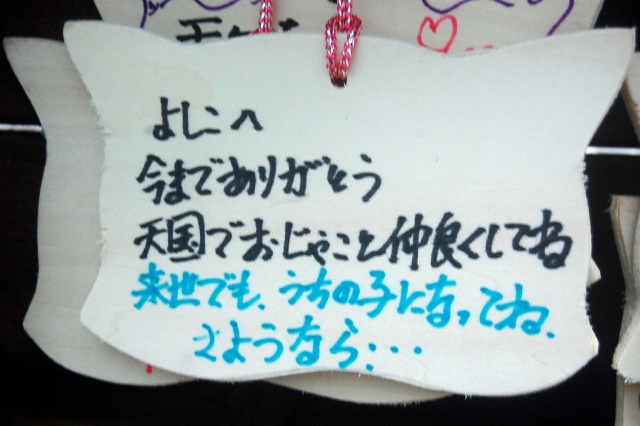 よしこへ
今までありがとう
天国でおじゃこと仲良くしてね
来世でも、うちの子になってね、
さようなら・・・